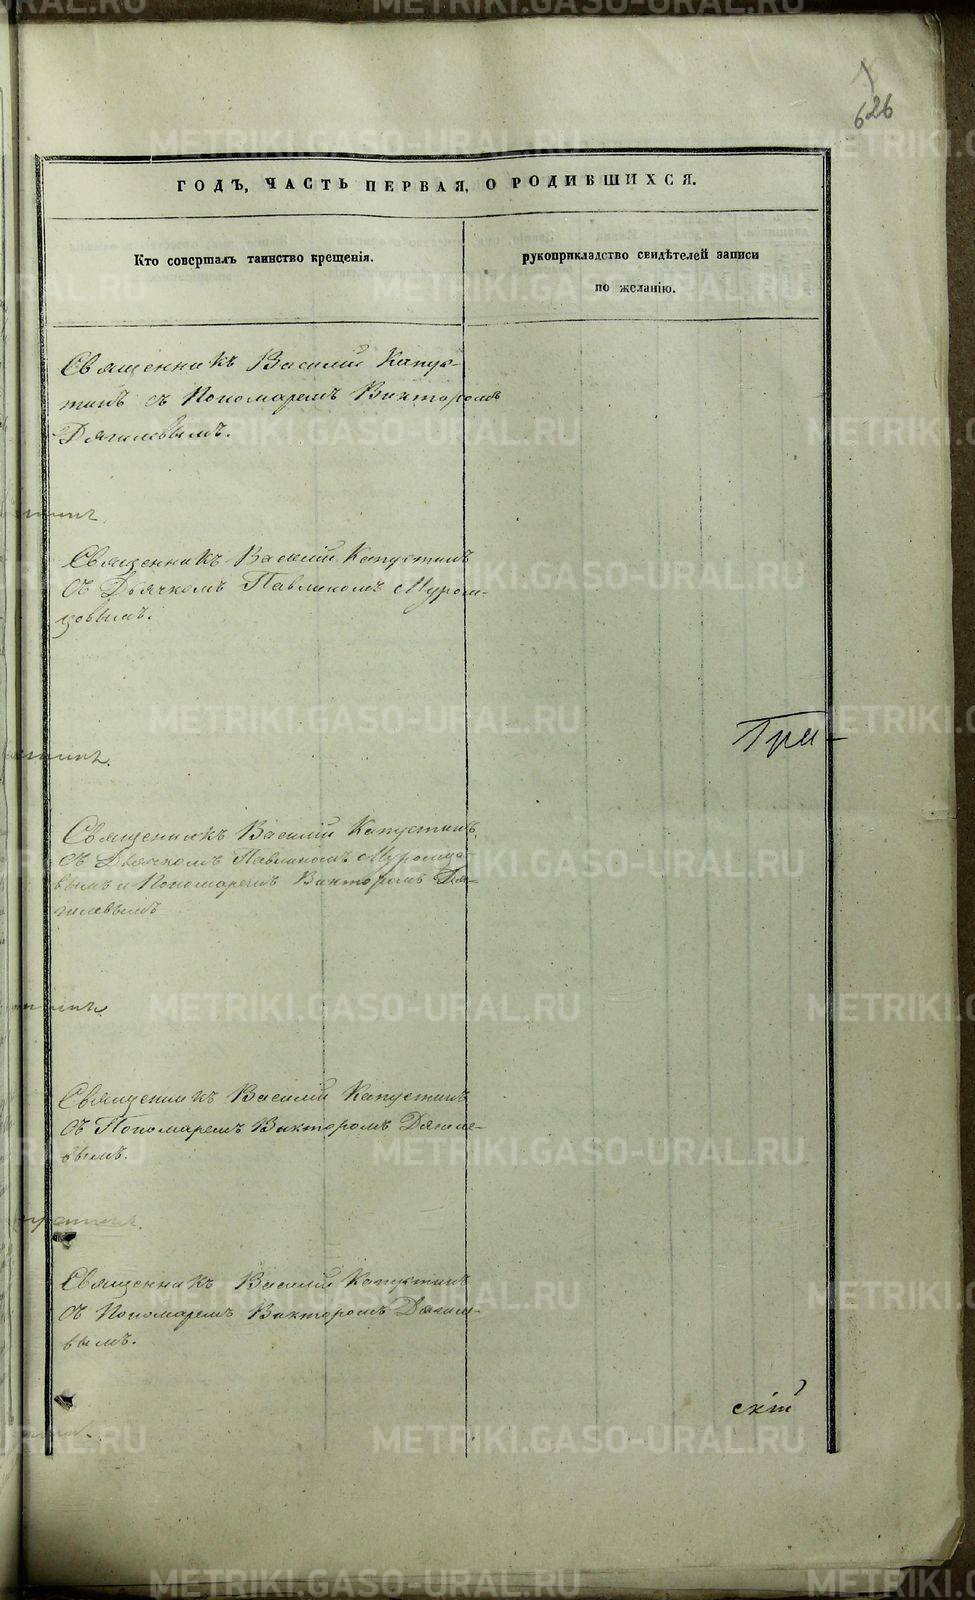 626
ГОДЪ, ЧАСТЬ ПЕРВАЯ, О РОДИВШИХСЯ.
Кто совершалъ таинство крещенія.
рукоприкладство свидѣтелей записи
по желанію.
Священникъ Василій Капус-
тинъ съ Пономаремъ Викторомъ
Дягилевымъ.
Священникъ Василій Капустинъ
съ Дьячкомъ Павлиномъ Муром-
цовымъ.
Три-
Священникъ Василій Капустинъ,
съ Дьячкомъ Павлиномъ Муромцо-
вымъ и Пономаремъ Викторомъ Дя-
гилевымъ
Священникъ Василій Капустинъ
съ Пономаремъ Викторомъ Дягиле-
вымъ.
Священникъ Василій Капустинъ
съ Пономаремъ Викторомъ Дягиле-
вымъ.
скій
METRIKI.GASO-URAL.RU